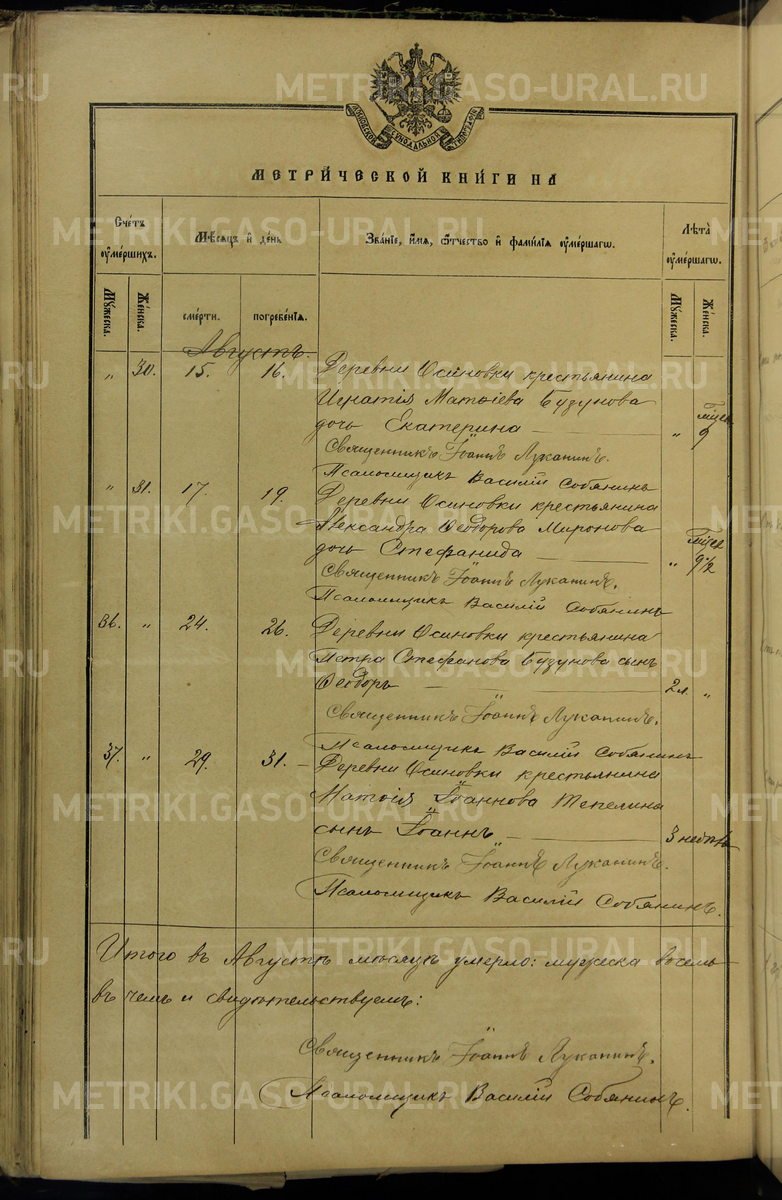 МОСКОВСКОЙ СУНОДАЛЬНОЙ ТИПОГРАФІИ
МЕТРИ́ЧЕСКОЙ КНИ́ГИ НА
Сче́тъ оуме́ршихъ.
Мѣ́сяцъ и де́нь
Зва́ніе, и́мя, ѻ́тчество и фами́лія оуме́ршагѡ.
Лѣта̀ оуме́ршагѡ.
Му́жеска.
Же́нска.
сме́рти.
погребе́нія.
Му́жеска.
Же́нска.
Августъ.
„ 30. 15. 16. Деревни Осиновки крестьянина
Игнатія Матѳіева Бузунова
дочь Екатерина — „ мѣсец. 9
Священникъ Іоаннъ Луканинъ.
Псаломщикъ Василій Собянинъ
„ 31. 17. 19. Деревни Осиновки крестьянина
Александра Ѳеодорова Миронова
дочь Стефанида — „ мѣсец. 9 1/2
Священникъ Іоаннъ Луканинъ.
Псаломщикъ Василій Собянинъ
36. „ 24. 26. Деревни Осиновки крестьянина
Петра Стефанова Бузунова сынъ
Ѳеодоръ — 2 л. „
Священникъ Іоаннъ Луканинъ.
Псаломщикъ Василій Собянинъ
37. „ 29. 31. Деревни Осиновки крестьянина
Матѳія Іоаннова Тепелина
сынъ Іоаннъ — 3 недѣль
Священникъ Іоаннъ Луканинъ.
Псаломщикъ Василій Собянинъ.
Итого въ Августѣ мѣсяцѣ умерло: мужеска восемь
въ чемъ и свидѣтельствуемъ:
Священникъ Іоаннъ Луканинъ.
Псаломщикъ Василій Собянинъ.
METRIKI.GASO-URAL.RU